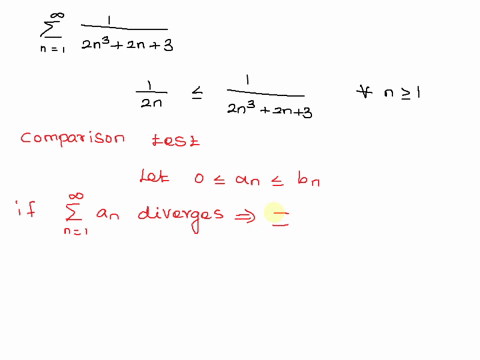 ∞ ∑ n=1 1/(2n³+2n+3)
1/2n ≤ 1/(2n³+2n+3) ∀ n ≥ 1
comparison test
Let 0 ≤ an ≤ bn
if ∞ ∑ n=1 an diverges ⇒